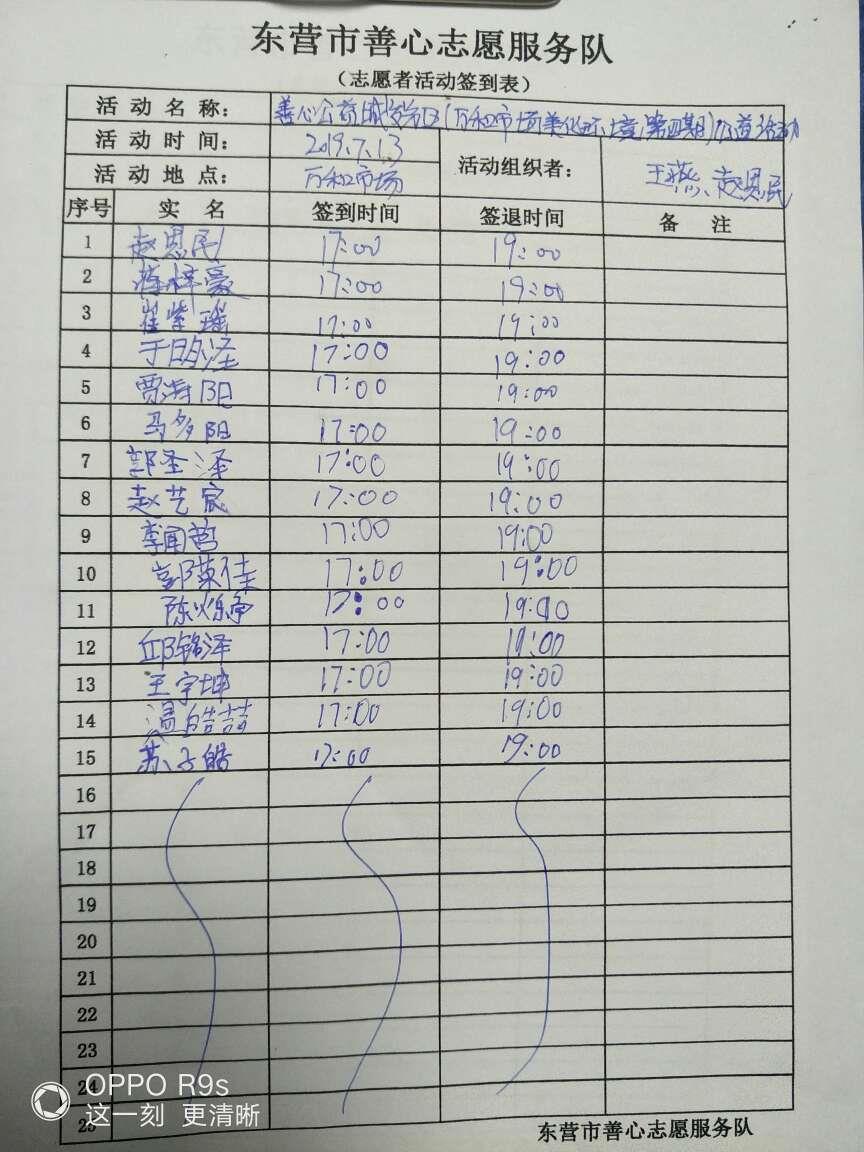 东营市善心志愿服务队
(志愿者活动签到表)
活动名称: 善心公益城 (万和市场美化环境,第四期)公益活动
活动时间: 2019.7.13
活动地点: 万和市场
活动组织者: 王燕、赵恩民
序号 实名 签到时间 签退时间 备注
1 赵恩民 17:00 19:00
2 梓豪 17:00 19:00
3 崔紫瑶 17:00 19:00
4 于明泽 17:00 19:00
5 贾海阳 17:00 19:00
6 马多阳 17:00 19:00
7 郭圣泽 17:00 19:00
8 赵艺宸 17:00 19:00
9 李闻哲 17:00 19:00
10 郭英佳 17:00 19:00
11 陈烁宇 17:00 19:00
12 邱铭泽 17:00 19:00
13 王宇坤 17:00 19:00
14 温皓喆 17:00 19:00
15 苏子皓 17:00 19:00
16
17
18
19
20
21
22
23
24
25
OPPO R9s
这一刻 更清晰
东营市善心志愿服务队